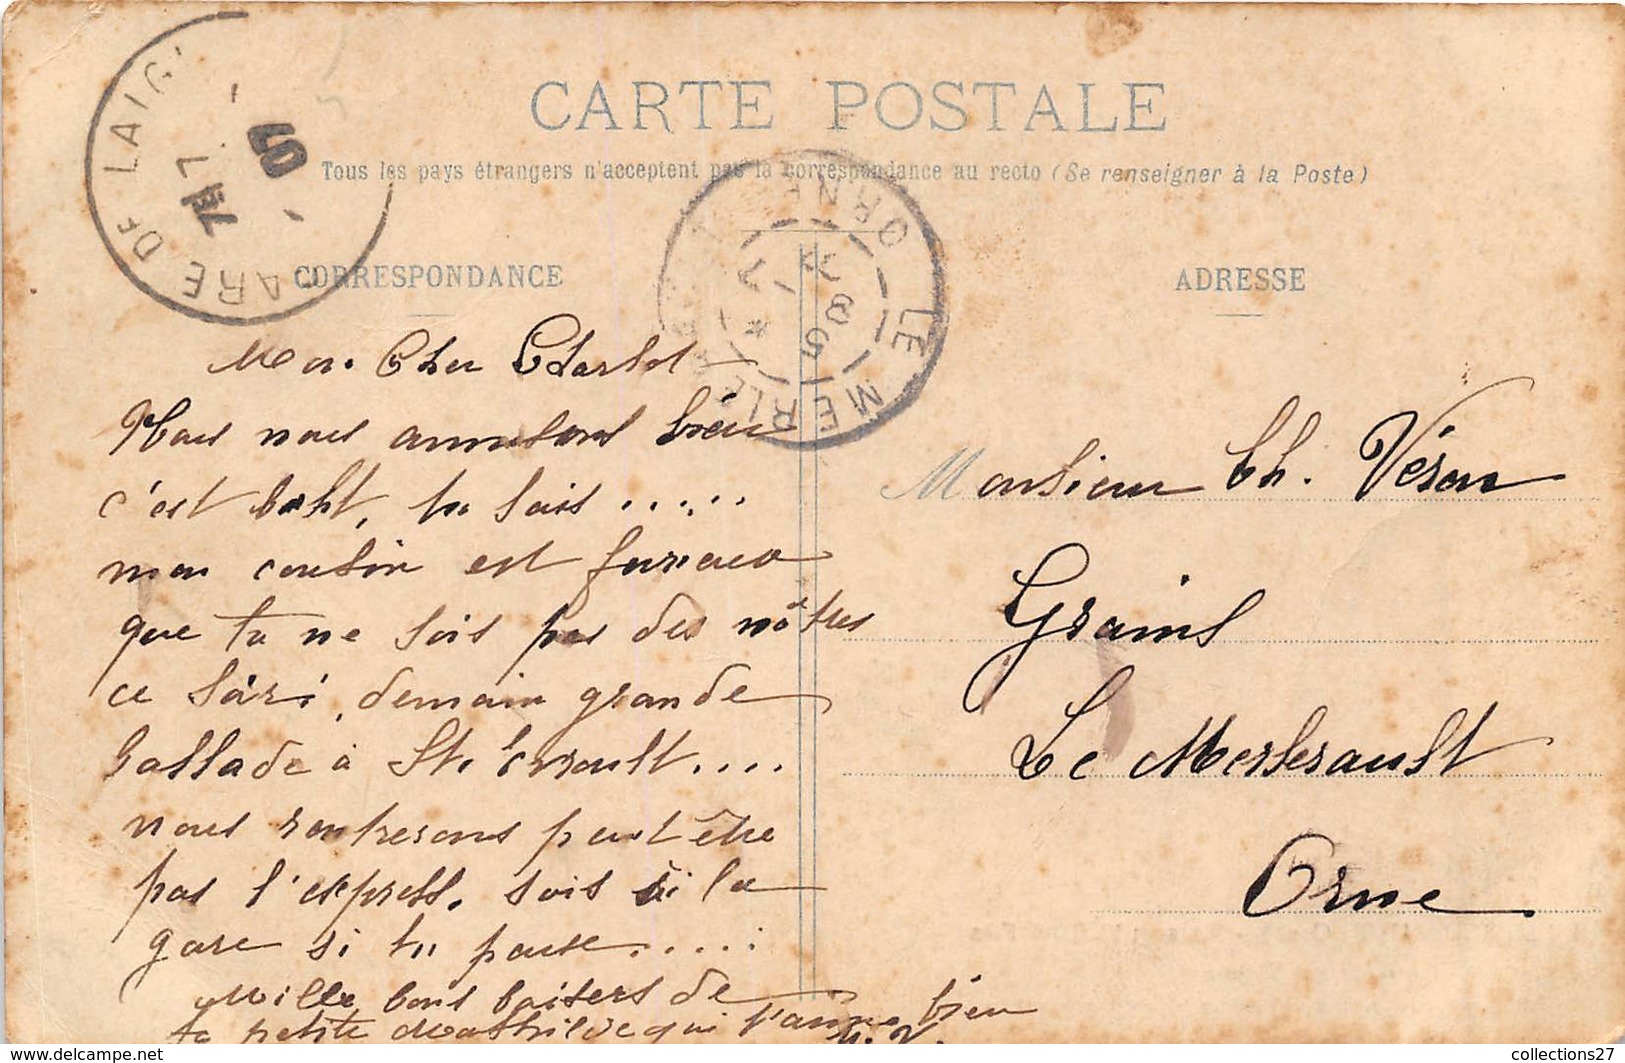 CARTE POSTALE
Tous les pays étrangers n'acceptent pas la correspondance au recto (Se renseigner à la Poste)
CORRESPONDANCE
ADRESSE
GARE DE LAIG
7 07
LE MERLERAULT ORNE
Mon Cher Charlot
Nous nous amusons bien
c'est tu sais .....
mon cousin est furieux
que tu ne sois pas des nôtres
ce demain grande
ballade à St. Evroult....
nous rentrerons peut être
par l'express. sois à la
gare si tu peux.....
Mille bons baisers de
ta petite Mathilde qui t'aime bien
M. V.
Monsieur Ch. Véron
Grains
Le Merlerault
Orne
collections27